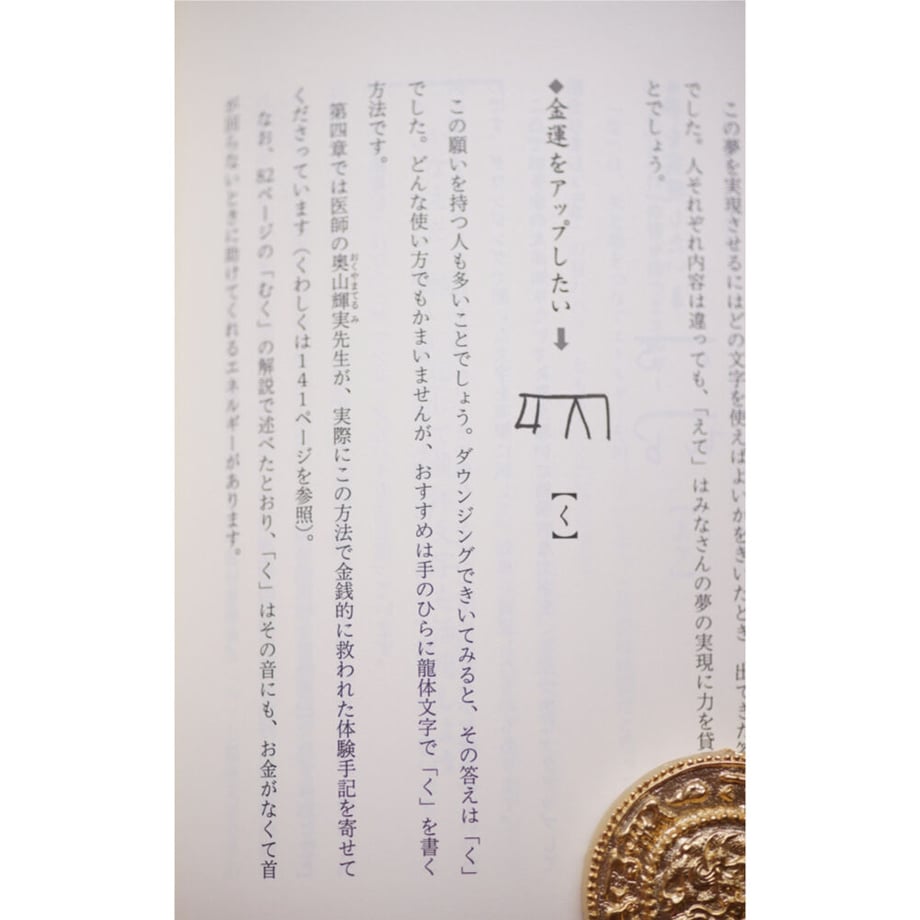 この夢を実現させるにはどの文字を使えばよいかをきいたとき、出てきた答
でした。人それぞれ内容は違っても、「えて」はみなさんの夢の実現に力を貸
とでしょう。
◆金運をアップしたい➡
【く】
この願いを持つ人も多いことでしょう。ダウンジングできいてみると、その答えは「く」
でした。どんな使い方でもかまいませんが、おすすめは手のひらに龍体文字で「く」を書く
方法です。
第四章では医師の奥山輝実先生が、実際にこの方法で金銭的に救われた体験手記を寄せて
おくやまてるみ
くださっています（くわしくは141ページを参照）。
なお、82ページの「むく」の解説で述べたとおり、「く」はその音にも、お金がなくて首
が回らないときに助けてくれるエネルギーがあります。